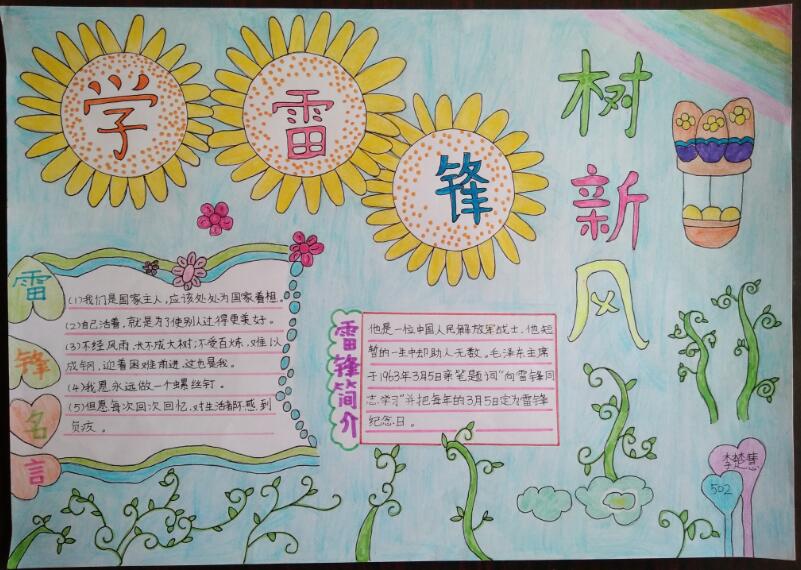 学雷锋
树新风
雷锋名言
(1)我们是国家主人,应该处处为国家着想。
(2)自己活着,就是为了使别人过得更美好。
(3)不经风雨,长不成大树;不受百炼,难以
成钢,迎着困难前进,这也是我。
(4)我愿永远做一个螺丝钉。
(5)但愿每次回次回忆,对生活都不感到
负疚。
雷锋简介
他是一位中国人民解放军战士,他短
暂的一生中却助人无数。毛泽东主席
于1963年3月5日亲笔题词"向雷锋同
志学习"并把每年的3月5日定为雷锋
纪念日。
李楚慧
502